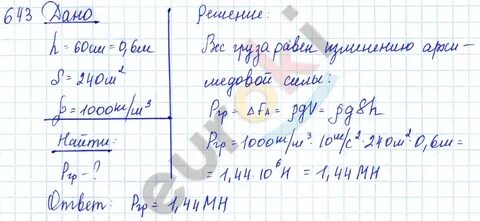 643 Дано
h = 60см = 0,6м
S = 240м²
ρ = 1000кг/м³
Найти:
Pгр - ?
Решение:
Вес груза равен изменению архи-
медовой силы:
Pгр = ΔFA = ρgV = ρgSh
Pгр = 1000кг/м³ · 10м/с² · 240м² · 0,6м =
= 1,44 · 10⁶ Н = 1,44 МН
Ответ: Pгр = 1,44 МН
euroki